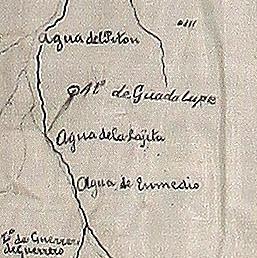 Agua del Piton
Mto de Guadalupe
Agua de la Lajita
Agua de Enmedio
Pto de Guerrero
de Guerrero